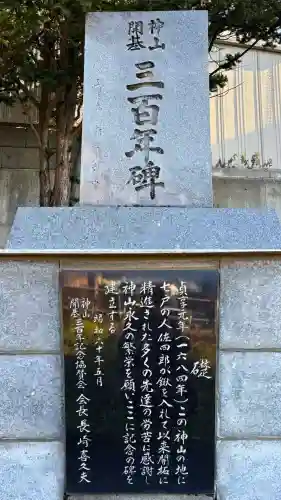 神山
開基
三百年碑
貞享元年(一六八四年)この神山の地に
七戸の人佐四郎が鍬を入れて以来開拓に
精進された多くの先達の労苦に感謝し
神山永久の栄光を願いここに記念の碑を
建立する
昭和六十年五月
神山
開基三百年記念協賛会 会長 長崎喜久夫